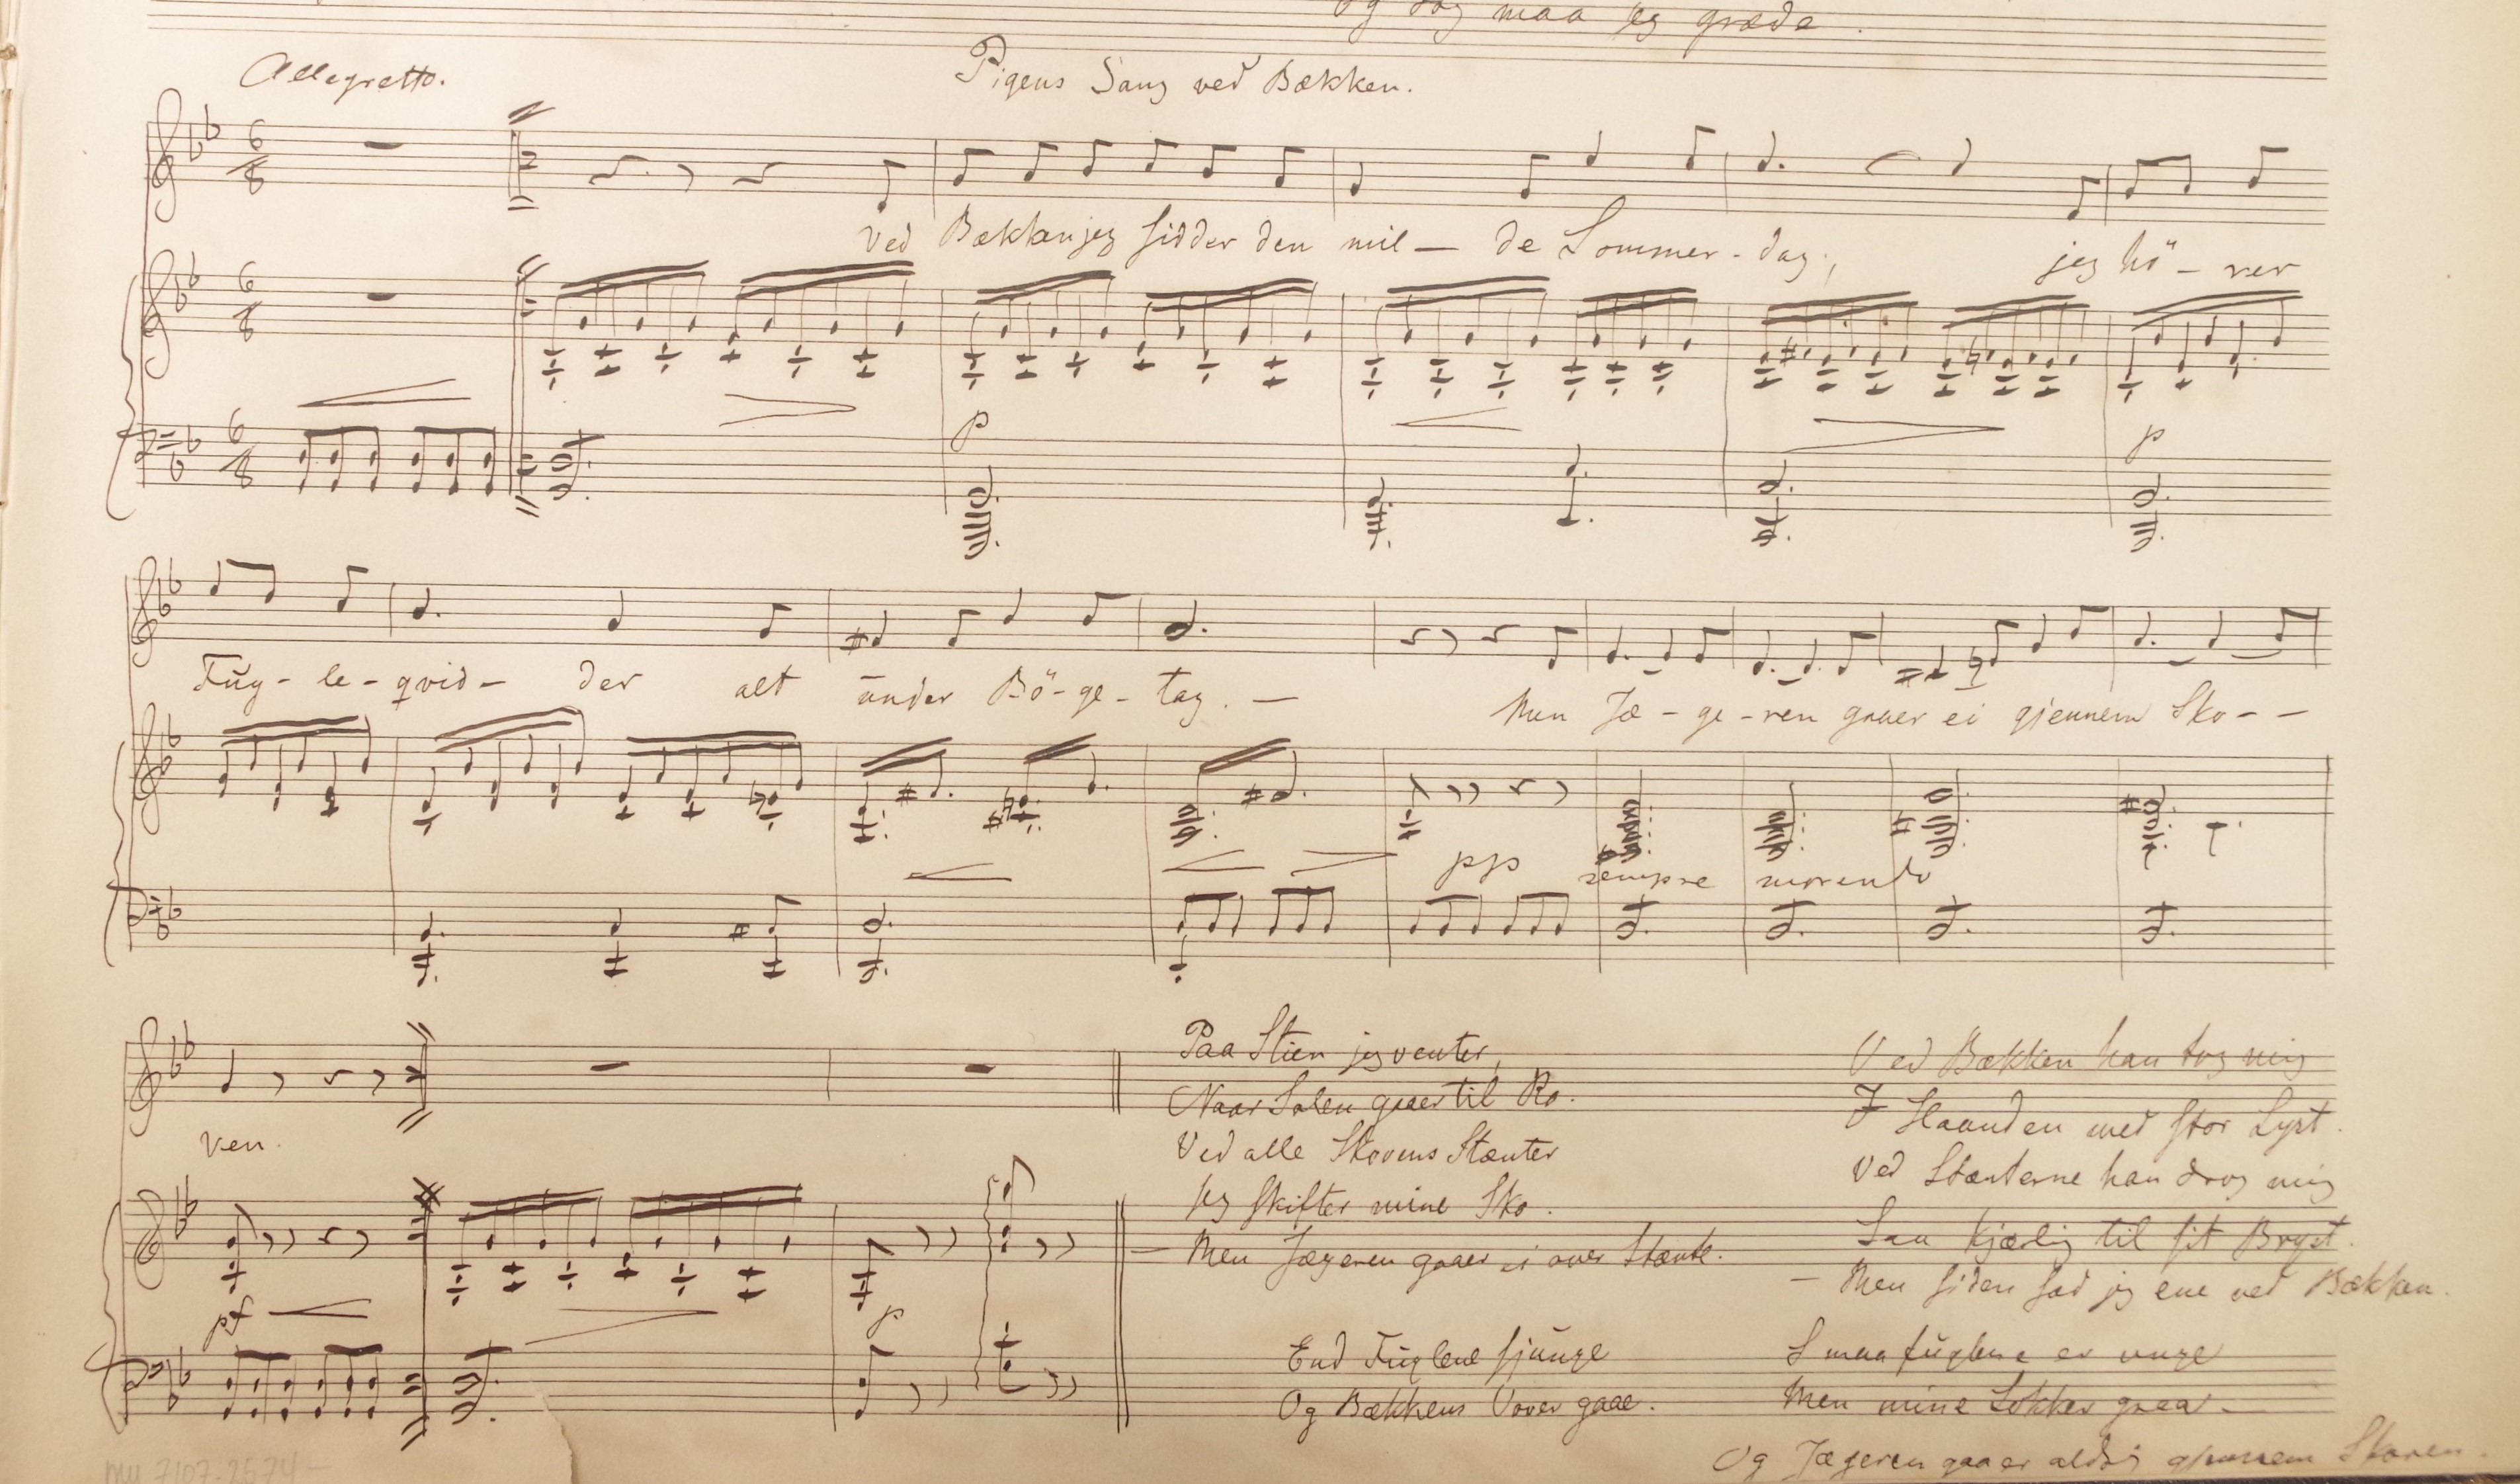 og dog maa jeg græde.
Allegretto.
Pigens Sang ved Bækken.
6
8
Ved Bækken jeg sidder den mil — de Sommer - dag, jeg hö - rer
6
8
p
p
6
8
Fŭg - le - qvid - der alt ŭnder Bö - ge - tag. — Men Jæ - ge - ren gaaer ei gjennem Sko - -
ppp sempre morendo
ven.
pf
p
Paa Stien jeg venter,
Naar Solen gaaer til Ro.
Ved alle Skovens Stænter
Jeg skifter mine Sko.
— Men Jægeren gaaer ei over Stænte.
End Fŭglene sjŭnge
Og Bækkens Vover gaae.
Ved Bækken han tog mig
I Haanden med stor Lyst.
Ved Stænterne han drog mig
Saa kjærlig til sit Bryst.
— Men siden sad jeg ene ved Bækken.
Smaafŭglene er unge
Men mine Lokker graa —
Og Jægeren gaaer aldrig gjennem Skoven.
MU 7107.2574 —